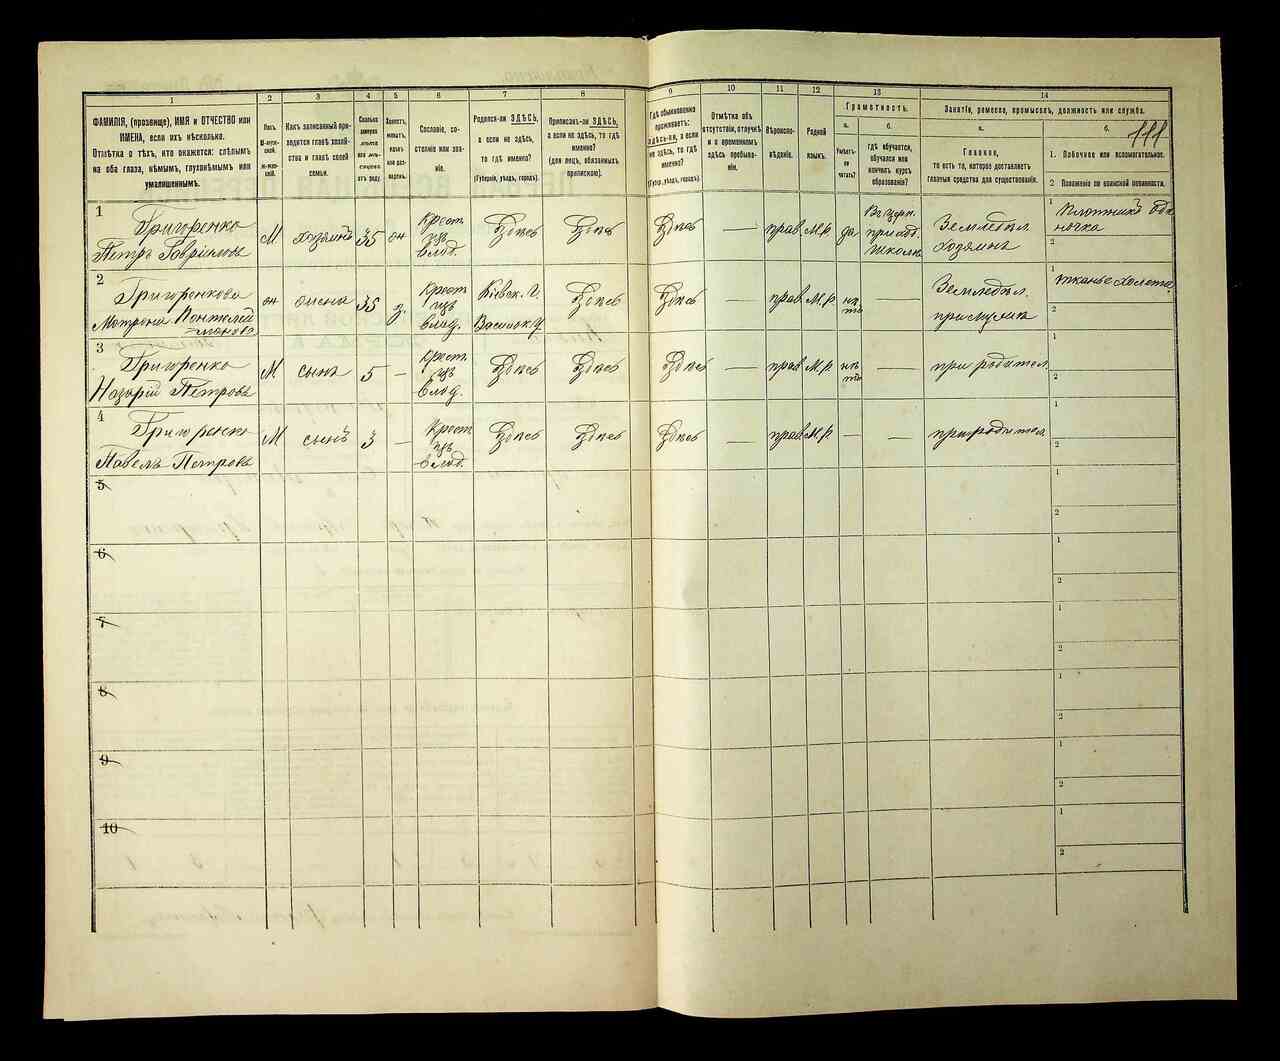 1
2
3
4
5
6
7
8
9
10
11
12
13
14
ФАМИЛІЯ, (прозвище), ИМЯ и ОТЧЕСТВО или
ИМЕНА, если ихъ нѣсколько.
Отмѣтка о тѣхъ, кто окажется: слѣпымъ
на оба глаза, нѣмымъ, глухонѣмымъ или
умалишеннымъ.
Полъ.
М-муж-
ской.
Ж-жен-
скій.
Какъ записанный при-
ходится главѣ хозяй-
ства и главѣ своей
семьи.
Сколько
минуло
лѣтъ
или мѣ-
сяцевъ
отъ роду.
Холостъ,
женатъ,
вдовъ
или раз-
веденъ.
Сословіе, со-
стояніе или зва-
ніе.
Родился-ли ЗДѢСЬ,
а если не здѣсь,
то гдѣ именно?
(Губернія, уѣздъ, городъ).
Приписанъ-ли ЗДѢСЬ,
а если не здѣсь, то гдѣ
именно?
(для лицъ, обязанныхъ
припискою).
Гдѣ обыкновенно
проживаетъ:
здѣсь-ли, а если
не здѣсь, то гдѣ
именно?
(Губер., уѣздъ, городъ).
Отмѣтка объ
отсутствіи, отлучкѣ
и о временномъ
здѣсь пребыва-
ніи.
Вѣроиспо-
вѣданіе.
Родной
языкъ.
Грамотность.
а.
Умѣетъ-
ли
читать?
б.
Гдѣ обучается,
обучался или
кончилъ курсъ
образованія?
Занятія, ремесло, промыселъ, должность или служба.
а.
Главное,
то есть то, которое доставляетъ
главныя средства для существованія.
б.
111
1. Побочное или вспомогательное.
2 Положеніе по воинской повинности.
1
Григоренко
Петръ Гавріиловъ
М
хозяинъ
35
жн
Крест
изъ
влад.
Здѣсь
Здѣсь
Здѣсь
—
прав.
М.р.
да
Въ церк.
приход.
школѣ
Земледѣл.
хозяинъ
1
Плотникъ оди
ночка
2
2
Григоренкова
Мотрона Пантелей
монова
ж
жена
35
з
Крест
изъ
влад.
Кіевск. г.
Васильк. у.
Здѣсь
Здѣсь
—
прав.
М.р.
нѣ
тъ
—
Земледѣл.
1
тканье холста
2
3
Григоренко
Назарій Петровъ
М
сынъ
5
—
Крест.
изъ
влад.
Здѣсь
Здѣсь
Здѣсь
—
прав.
М.р.
нѣ
тъ
—
при родител.
1
2
4
Григоренко
Павелъ Петровъ
М
сынъ
3
—
Крест
изъ
влад.
Здѣсь
Здѣсь
Здѣсь
—
прав.
М.р.
—
—
при родител.
1
2
5
1
2
6
1
2
7
1
2
8
1
2
9
1
2
10
1
2